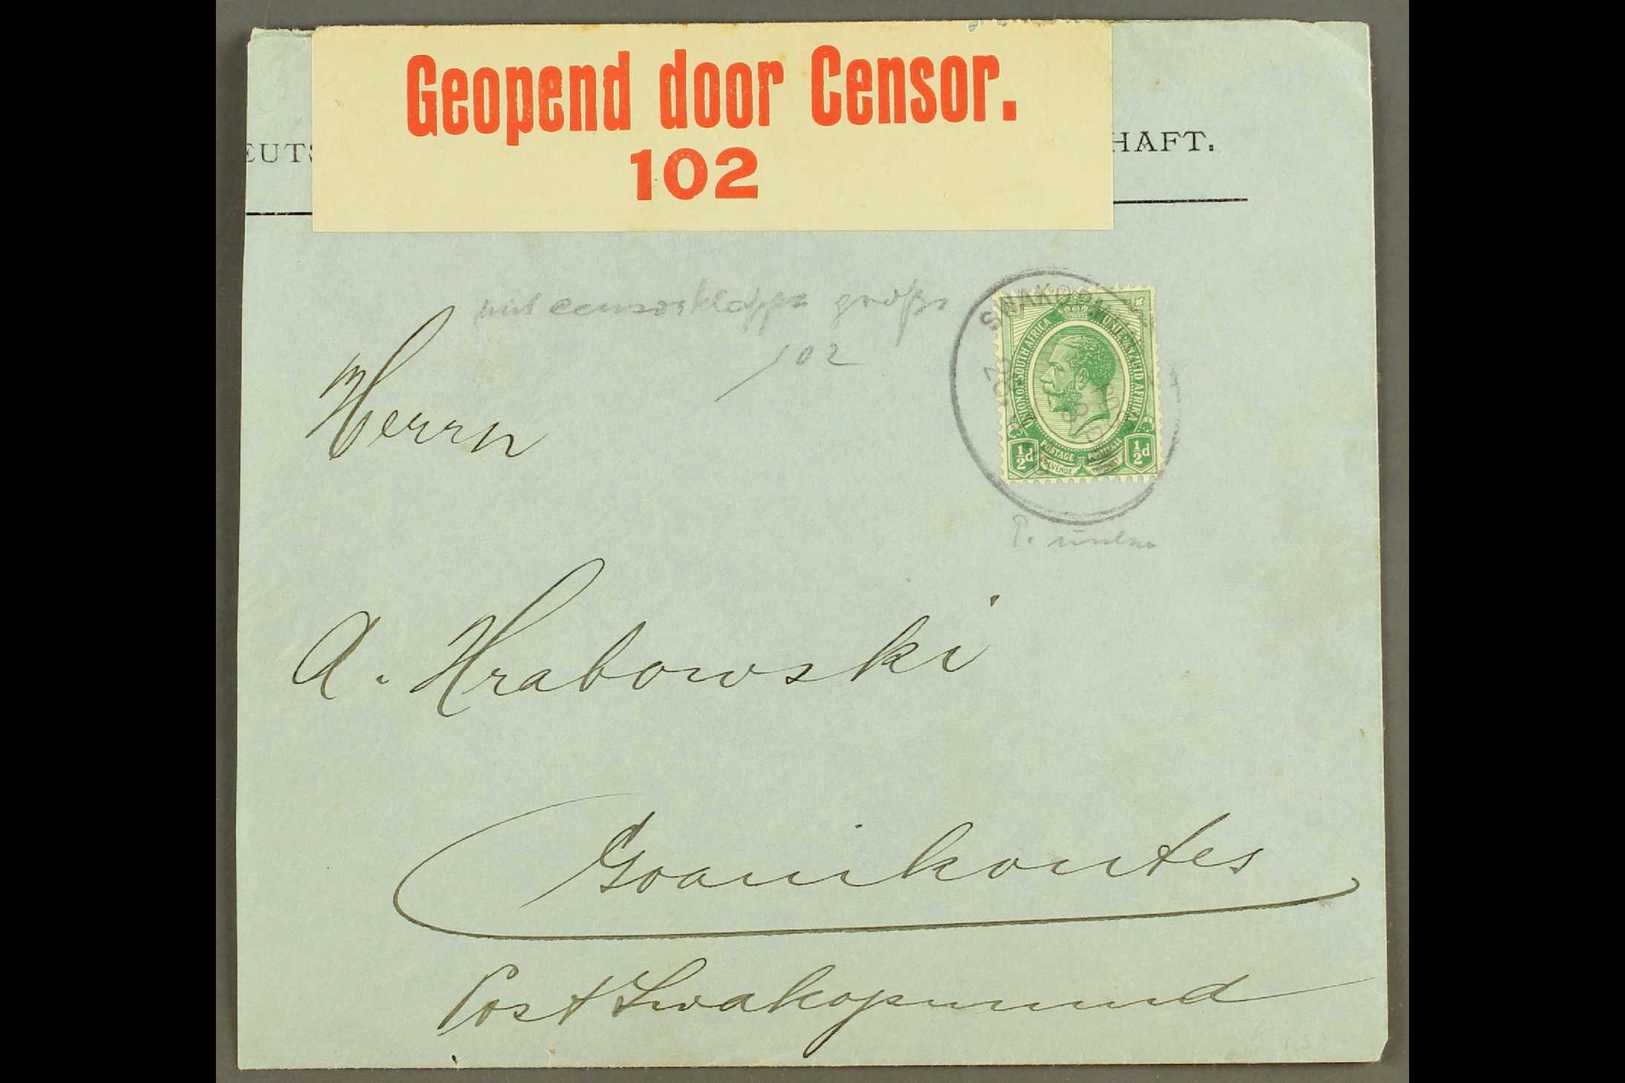 Geopend door Censor.
102
EUTS HAFT.
mit censorklappe große
102
SWAKOPM
UNION OF SOUTH AFRICA UNIE VAN ZUID AFRIKA
½d POSTAGE REVENUE ½d
Herrn
A. Hrabowski
Goanikontes
Post Swakopmund